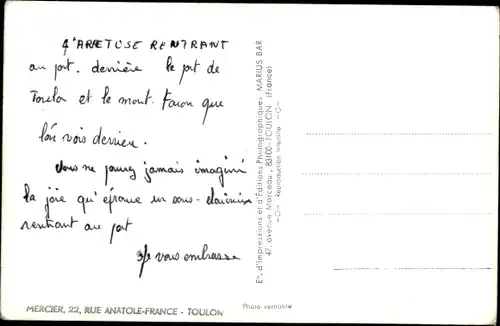 L'ARETUSE RENTRANT
au port. derrière le port de
Toulon et le mont. Faron que
l'on vois derriere.
Vous ne pouvez jamais imaginé
la joie qu'éprouve un sous-
rentrant au port
Je vous embrasse
MERCIER, 22, RUE ANATOLE-FRANCE - TOULON
Photo véritable
Ets. d'Impressions et d'Éditions Photographiques MARIUS BAR
47, avenue Marceau, 83100-TOULON (France)
—O— Reproduction interdite —O—